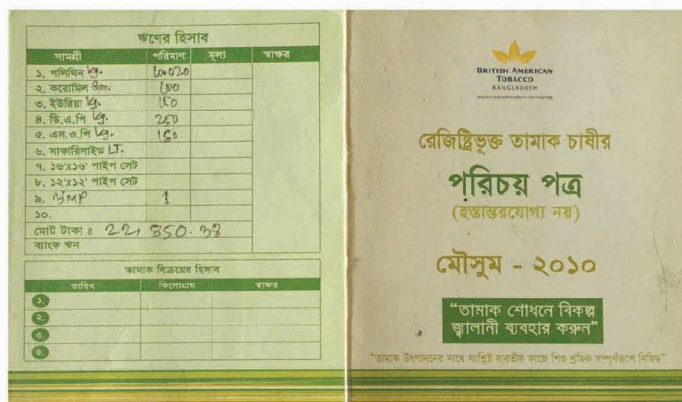 ঋণের হিসাব
সামগ্রী পরিমাণ মূল্য স্বাক্ষর
১. পলিথিন kg.
২. করোমিল Gm. 100
৩. ইউরিয়া kg. 150
৪. ডি.এ.পি kg. 250
৫. এস.ও.পি kg. 150
৬. সাকারিসাইড LT.
৭. ১৬'X১৬' পাইপ সেট
৮. ১২'X১২' পাইপ সেট
৯. 1
১০.
মোট টাকা ঃ 22, 850. 38
ব্যাংক ঋন
তামাক বিক্রয়ের হিসাব
তারিখ কিলোগ্রাম স্বাক্ষর
১.
২.
৩.
৪.
BRITISH AMERICAN
TOBACCO
BANGLADESH
রেজিষ্ট্রিভূক্ত তামাক চাষীর
পরিচয় পত্র
(হস্তান্তরযোগ্য নয়)
মৌসুম - ২০১০
“তামাক শোধনে বিকল্প
জ্বালানী ব্যবহার করুন”
"তামাক উৎপাদনের সাথে সংশ্লিষ্ট যাবতীয় কাজে শিশু শ্রমিক সম্পূর্ণরূপে নিষিদ্ধ"